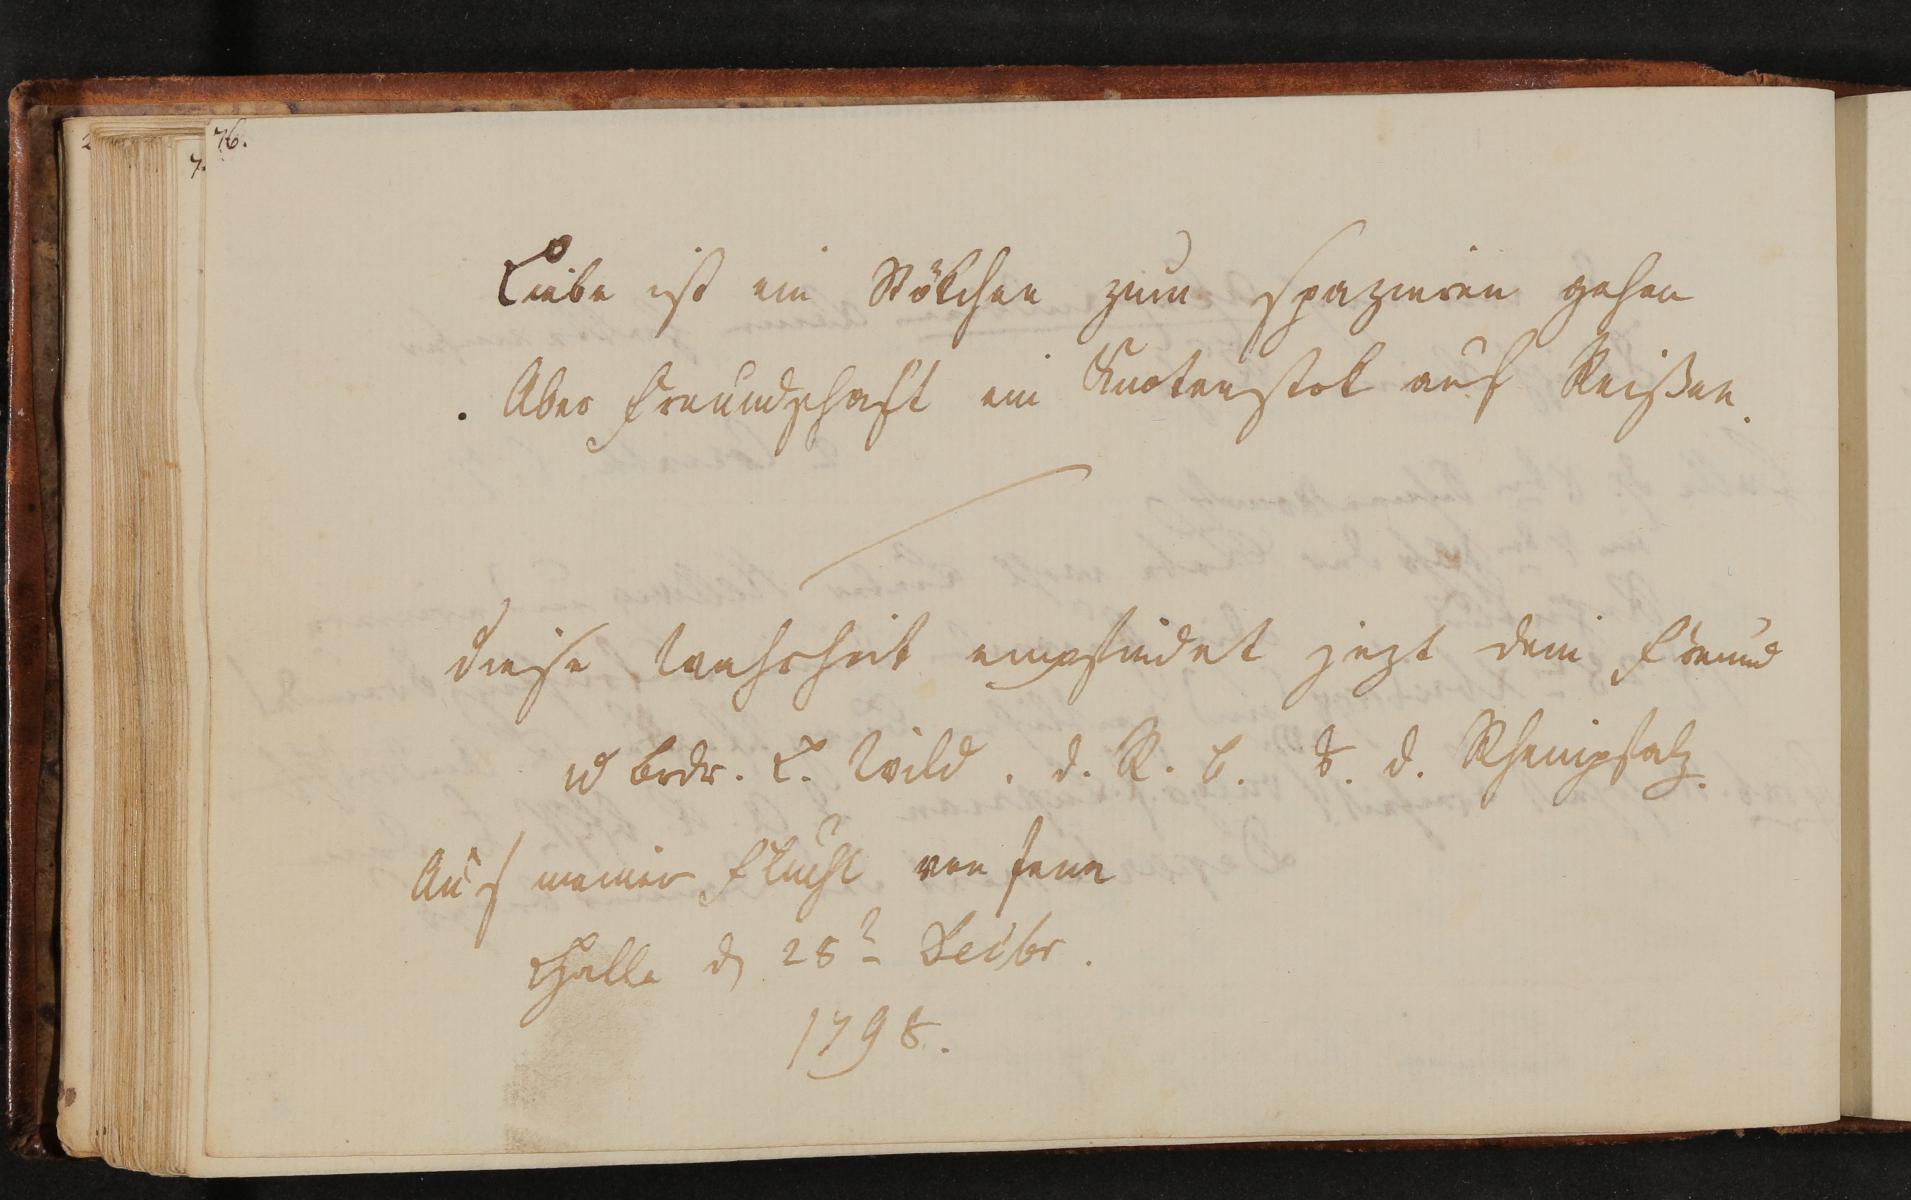 76.
Liebe ist ein Stökchen zum spazieren gehen
Aber Freundschaft ein Knotenstok auf Reißen.
Diese Wahrheit empfindet jezt dein Freund
u Brdr. L. Wild. d. R. B. d. Rheinpfalz.
Auf meiner Flucht von Jena
Halle d 28t Decbr.
1798.